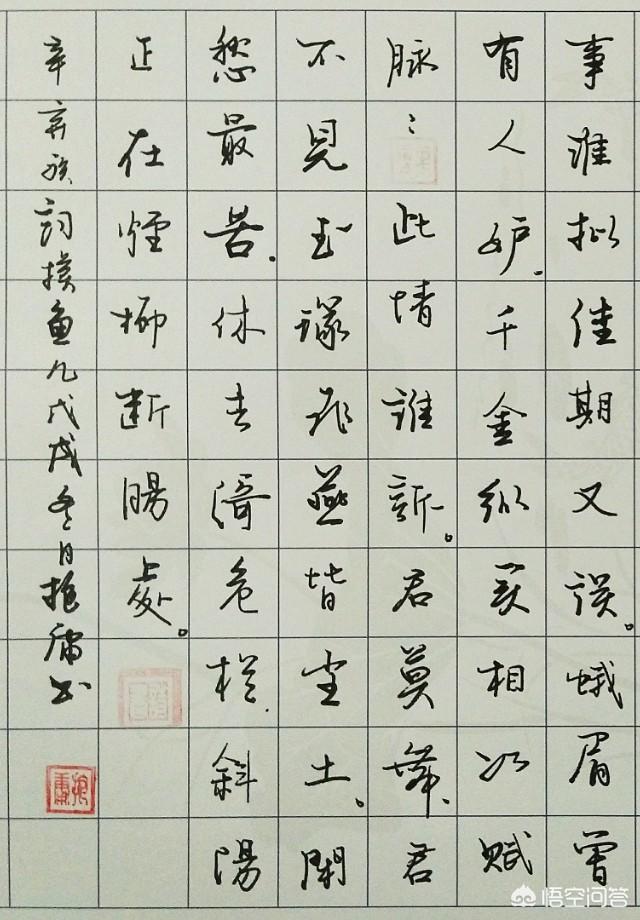 事准拟佳期又误。蛾眉曾
有人妒.千金纵买相如赋
脉〻此情誰訴。君莫舞.君
不見玉環飞燕皆尘土。閑
愁最苦.休去倚危栏.斜陽
正在煙柳断腸處。
辛弃疾词摸鱼儿戊戌冬日抱庸书
悟空问答